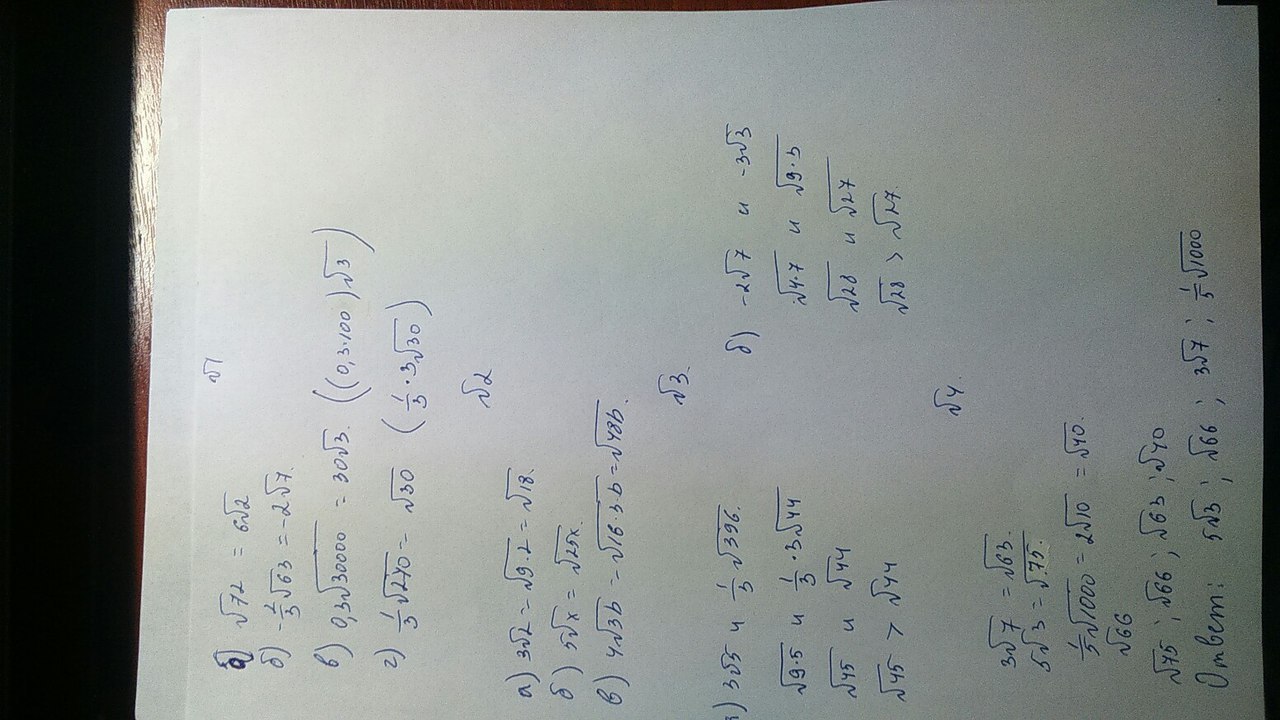 √1
а) √72 = 6√2
б) -⅓√63 = -2√7.
в) 0,3√30000 = 30√3. ((0,3·100)√3)
г) ⅓√270 = √30 (⅓·3√30)
√2
а) 3√2 = √9·2 = √18.
б) 5√x = √25x.
в) 4√3b = √16·3·b = √48b.
√3.
а) 3√5 и ⅓√396.
√9·5 и ⅓·3√44
√45 и √44
√45 > √44
б) -2√7 и -3√3
√4·7 и √9·3
√28 и √27
√28 > √27.
√4.
3√7 = √63.
5√3 = √75.
⅕√1000 = 2√10 = √40.
√66
√75; √66; √63; √40
Ответ: 5√3; √66; 3√7; ⅕√1000